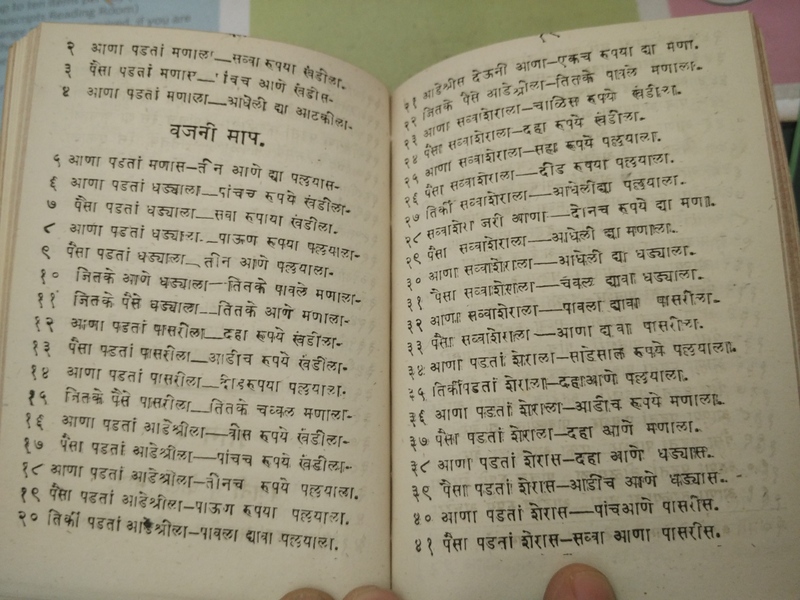 २ आणा पडतां मणाला—सव्वा रुपया खंडीला.
३ पैसा पडतां मणास—पांचच आणे खंडीस-
४ आणा पडतां मणाला—आधेली द्या आटकीला.
वजनी माप.
५ आणा पडतां मणास—तीन आणे द्या पल्लयास-
६ आणा पडतां धड्याला—पांचच रुपये खंडीला-
७ पैसा पडतां धड्याला—सवा रुपाया खंडीला.
८ आणा पडतां धड्याला—पाऊण रुपया पल्लयाला-
९ पैसा पडतां धड्याला—तीन आणे पल्लयाला-
१० जितके आणे धड्याला—तितके पावले मणाला-
११ जितके पैसे धड्याला—तितके आणे मणाला-
१२ आणा पडतां पासरीला—दहा रुपये खंडीला-
१३ पैसा पडतां पासरीला—आडीच रुपये खंडीला.
१४ आणा पडतां पासरीला—दीडरुपया पल्लयाला.
१५ जितके पैसे पासरीला—तितके चव्वल मणाला-
१६ आणा पडतां आडेश्रीला—वीस रुपये खंडीला-
१७ पैसा पडतां आडेश्रीला—पांचच रुपये खंडीला-
१८ आणा पडतां आडेश्रीला—तीनच रुपये पल्लयाला.
१९ पैसा पडतां आडेश्रीला—पाऊण रुपया पल्लयाला.
२० तिर्की पडतां आडेश्रीला—पावला द्यावा पल्लयाला.
२१ आडेश्रीस देऊनी आणा—एकच रुपया द्या मणा.
२२ जितके पैसे आडेश्रीला—तितके पावले मणाला.
२३ आणा सव्वाशेराला—चाळिस रुपये खंडीला.
२४ पैसा सव्वाशेराला—दहा रुपये खंडीला.
२५ आणा सव्वाशेराला—सहा रुपये पल्लयाला.
२६ पैसा सव्वाशेराला—दीड रुपया पल्लयाला.
२७ तिर्की सव्वाशेराला—आधेलीद्या पल्लयाला.
२८ सव्वाशेरा जरी आणा—दोनच रुपये द्या मणा.
२९ पैसा सव्वाशेराला—आधेली द्या मणाला.
३० आणा सव्वाशेराला—आधेली द्या धड्याला.
३१ पैसा सव्वाशेराला—चवल द्यावा धड्याला.
३२ आणा सव्वाशेराला—पावला द्यावा पासरीला.
३३ पैसा सव्वाशेराला—आणा द्यावा पासरीला.
३४ आणा पडतां शेराला—साडेसात रुपये पल्लयाला.
३५ तिर्कीपडतां शेराला—दहाआणे पल्लयाला.
३६ आणा पडतां शेराला—आडीच रुपये मणाला.
३७ पैसा पडतां शेराला—दहा आणे मणाला.
३८ आणा पडतां शेरास—दहा आणे धड्यास.
३९ पैसा पडतां शेरास—आडीच आणे धड्यास.
४० आणा पडतां शेरास—पांचआणे पासरीस.
४१ पैसा पडतां शेरास—सव्वा आणा पासरीस.